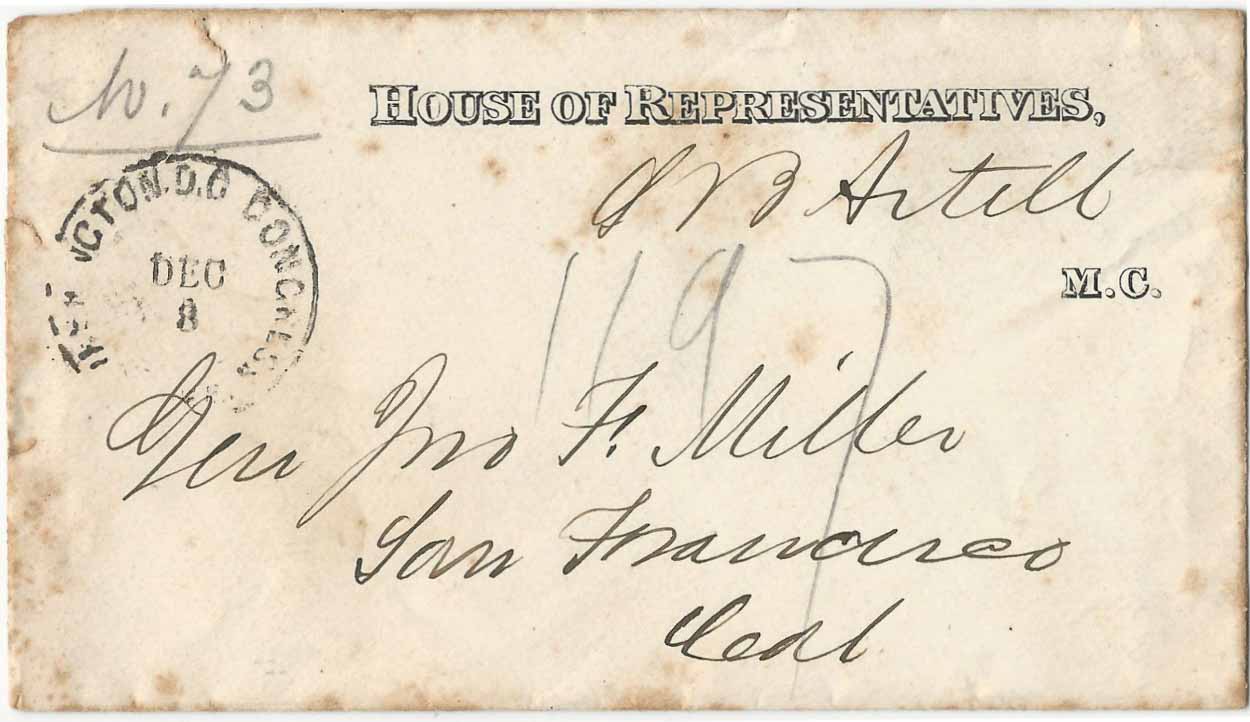 No. 73
HOUSE OF REPRESENTATIVES,
S B Axtell
M.C.
NGTON. D.C. CONGRESS
DEC
8
1197
Gen Jno F. Miller
San Francisco
Cal